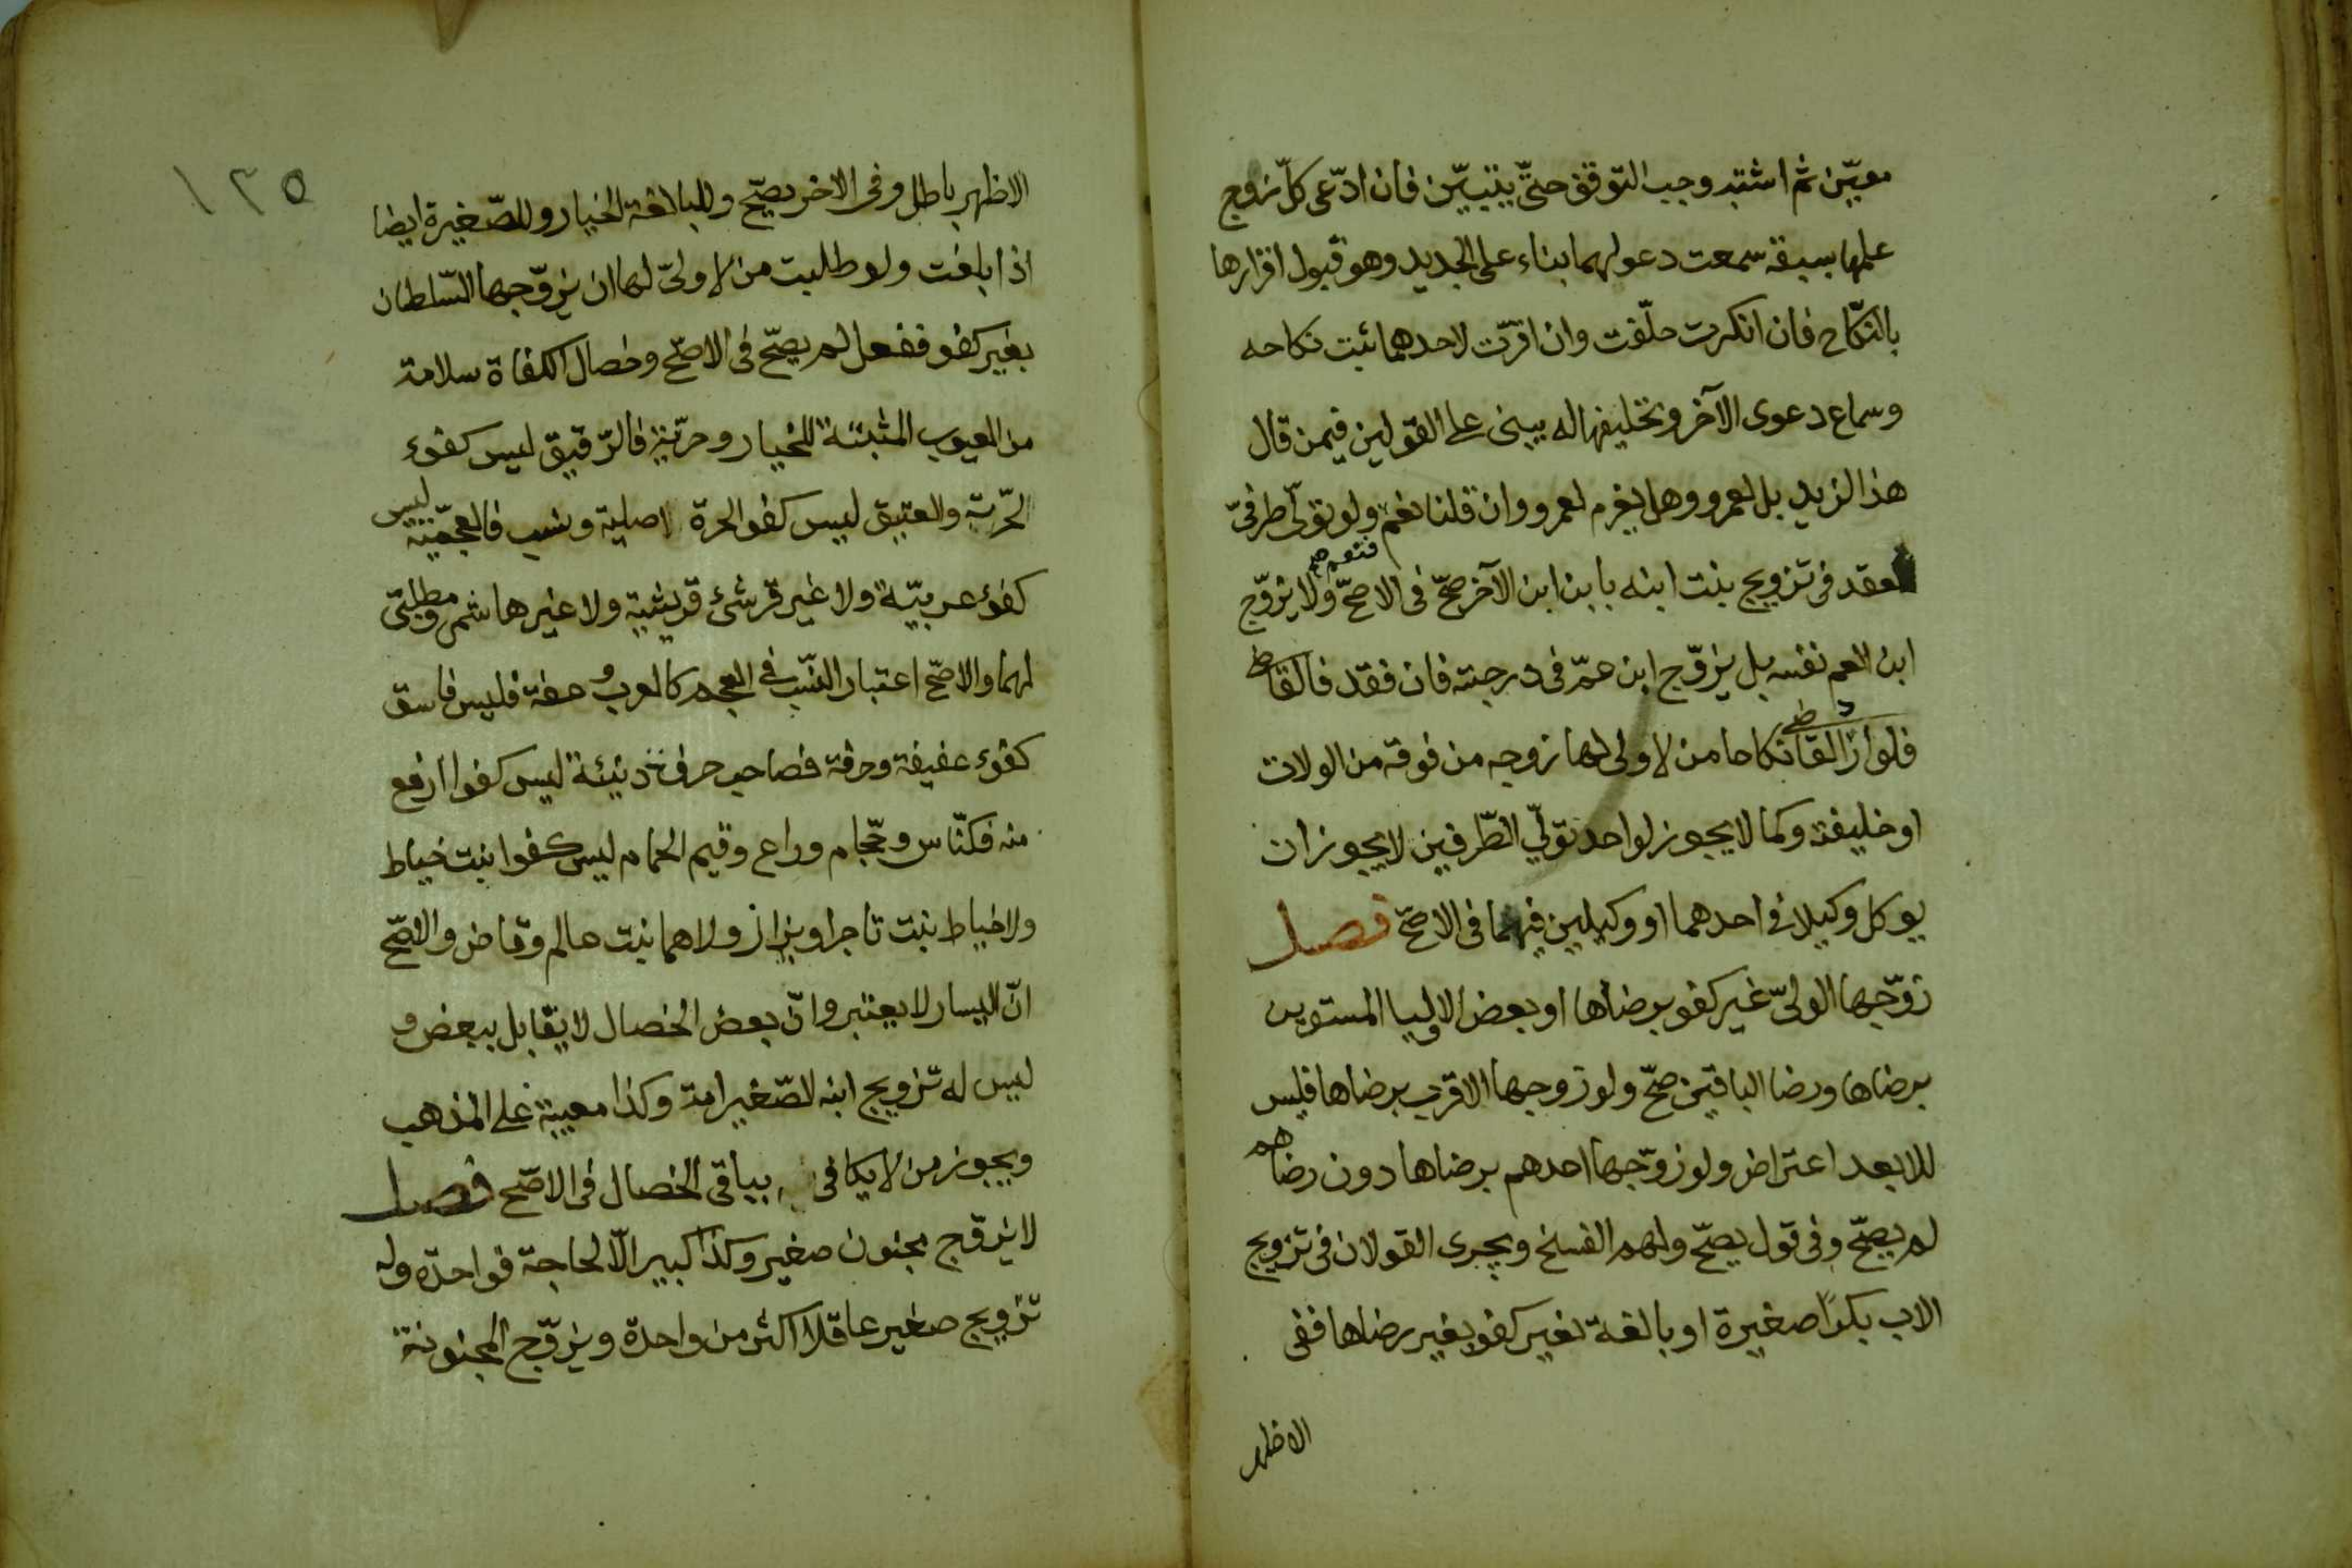 معيّن ثم اشتبه وجب التوقف حتىّ يتبيّن فان ادّعى كلّ زوج
علمها بسبقه سمعت دعواهما بناء على الجديد وهو قبول اقرارها
بالنكّاح فان انكرت حلّفت وان اقرّت لاحدهما ثبت نكاحه
وسماع دعوى الآخر وتحليفها له يبنى على القولين فيمن قال
هذا لزيد بل لعمرو وهل يغرم لعمرو وان قلنا نغم ولو تولّى طرفىّ
فنعم صح
لعقد فى تزويج بنت ابنه بابن ابن الآخر صحّ فى الاصحّ ولا يزوّج
ابن العم نفسه بل يزوّج ابن عمّ فى درجته فان فقد فالقاضى
فلو اراد القاضى نكاحا من لا ولى لها زوجه من فوقه من الولات
او خليفته وكما لا يجوز لواحد تولّي الطّرفين لا يجوز ان
يوكل وكيلا فى احدهما او وكيلين فيهما فى الاصحّ فصل
زوّجها الولىّ غير كفو برضاها او بعض الاوليا المستوين
برضاها ورضا الباقين صحّ ولو زوجها الاقرب برضاها فليس
للابعد اعتراض ولو زوّجها احدهم برضاها دون رضاهم
لم يصحّ وفى قول يصحّ ولهم الفسخ ويجرى القولان فى تزويج
الاب بكرًا صغيرة او بالغة بغير كفو بغير رضاها ففى
الاظهر
١٣٥
الاظهر باطل وفى الاخر يصحّ وللبالغة الخيار وللصّغيرة ايضا
اذا بلغت ولو طلبت من لا ولىّ لها ان يزوّجها السّلطان
بغير كفو ففعل لم يصحّ فى الاصحّ وخصال الكفاة سلامة
من العيوب المثبتة للخيار وحرّية فالرّقيق ليس كفوء
لحّرة والعتيق ليس كفو الحرة اصلية ونسب فالعجمّية ليس
كفوء عربيّة ولا غير قرشىء قريشية ولا غير هاشمى ومطلبىّ
لهما والاصحّ اعتبار النسّب فى العجم كالعرب وعفة فليس فاسق
كفوء عفيفة وحرفة فصاحب حرفة دنيئة ليس كفوا ارفع
منه فكنّاس وحجّام وراع وقيم الحمام ليس كفوا بنت خياط
ولا خياط بنت تاجر او بزاز ولا هما بنت عالم وقاض والاصحّ
انّ اليسار لا يعتبر وانّ بعض الخصال لا يقابل ببعض و
ليس له تزويج ابنه الصّغير امة وكذا معيبة على المذهب
ويجوز من لا يكافى بباقى الخصال فى الاصحّ فصل
لا يزوّج مجنون صغير وكذا كبير الّا لحاجة فواحدّة وله
تزويج صغير عاقلا اكثر من واحدة ويزوّج المجنونة